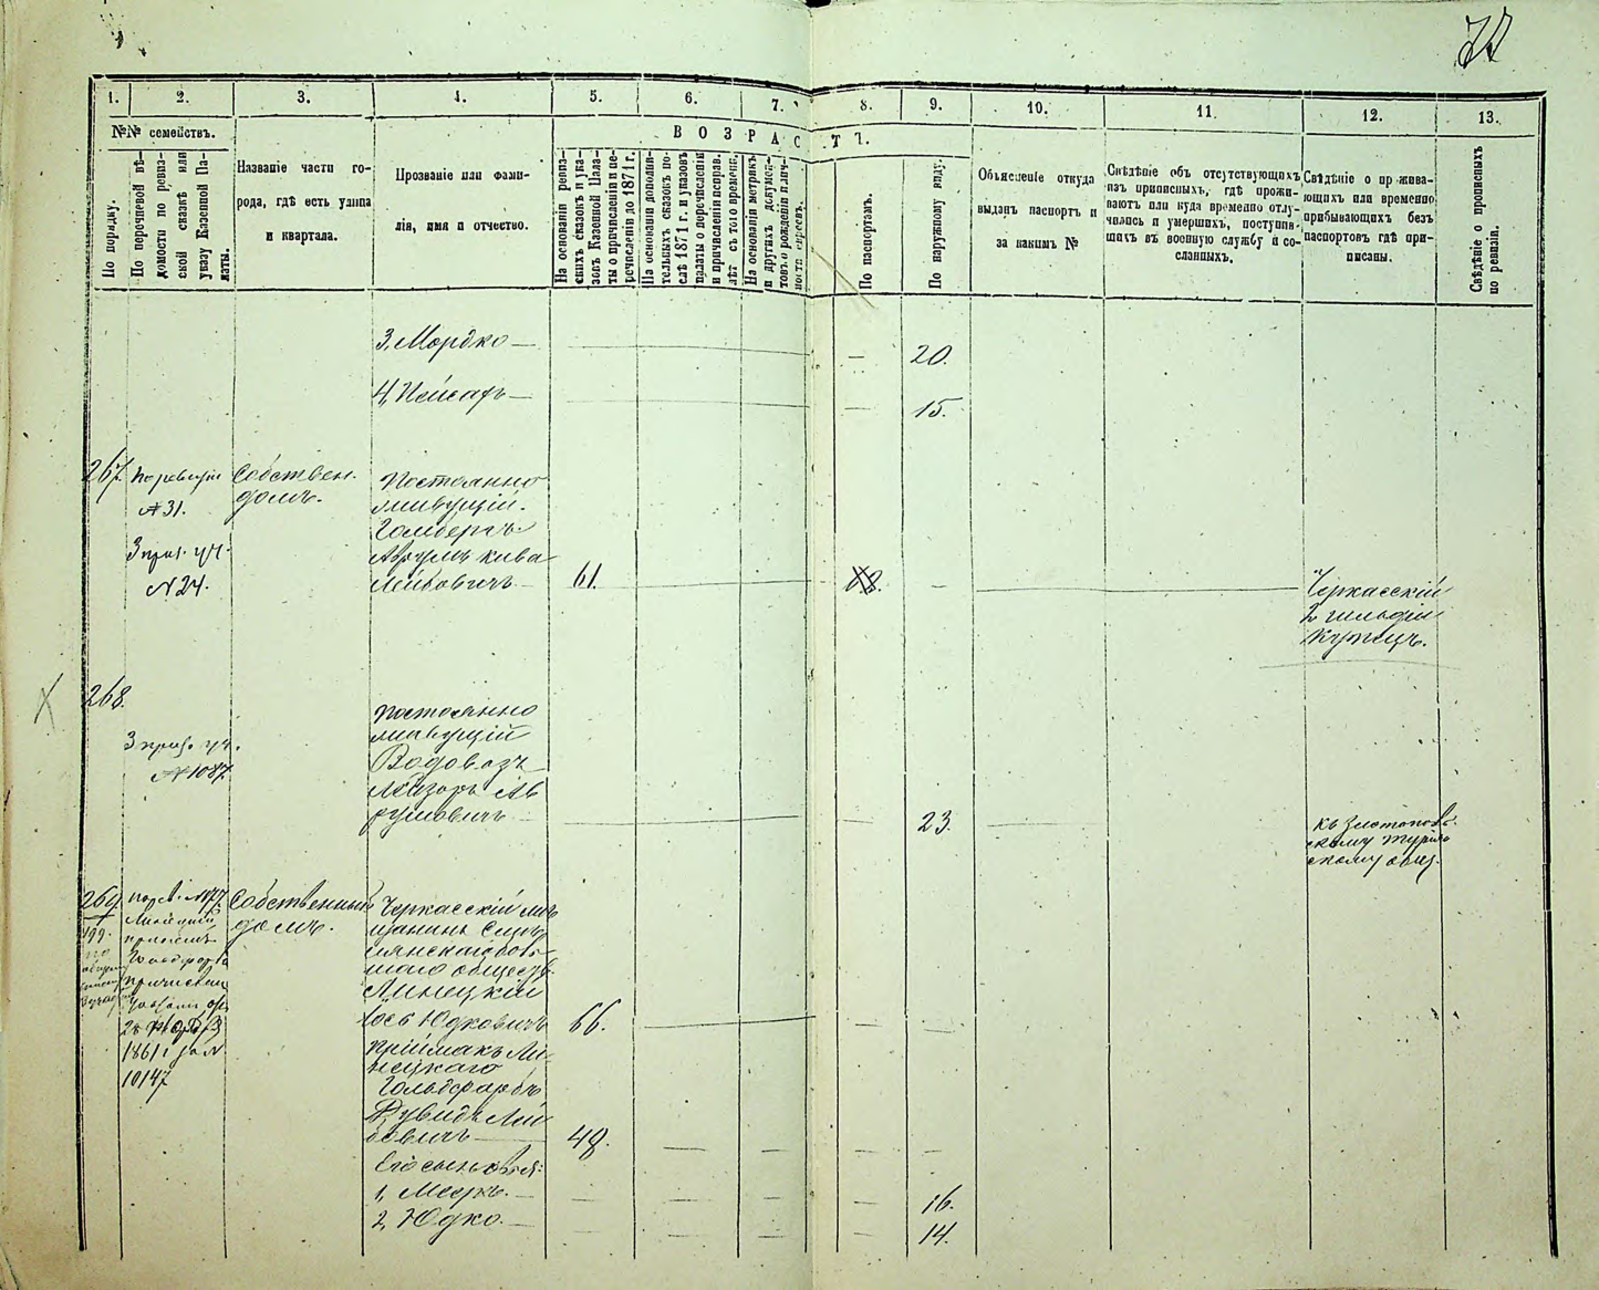 72
1.
2.
3.
4.
5.
6.
7.
8.
9.
10.
11.
12.
13.
№№ семействъ.
По порядку.
По перечневой вѣ-
домости по ревиз-
ской сказкѣ или
указу Казенной Па-
латы.
Названіе части го-
рода, гдѣ есть улица
и квартала.
Прозваніе или фами-
лія, имя и отчество.
ВОЗРАСТЪ.
На основаніи ревиз-
скихъ сказокъ и ука-
зовъ Казенной Пала-
ты о причисленіи и пе-
речисленіи до 1871 г.
На основаніи дополни-
тельныхъ сказокъ по-
слѣ 1871 г. и указовъ
палаты о перечисленіи
и причисленіи исправ.
лѣт съ того времени.
На основаніи метрикъ
и другихъ докумен-
товъ о рожденіи
По паспортамъ.
По наружному виду.
Объясненіе откуда
выданъ паспортъ и
за какимъ №
Свѣдѣніе объ отсутствующихъ
изъ приписныхъ, гдѣ прожи-
ваютъ или куда временно отлу-
чились и умершихъ, поступив-
шихъ въ военную службу и со-
сланныхъ.
Свѣдѣніе о прожива-
ющихъ или временно
прибывающихъ безъ
паспортовъ гдѣ при-
писаны.
Свѣдѣніе о прописныхъ
по ревизіи.
3, Мордко —
20.
4, Пейсахъ —
15.
267.
По ревизіи
№ 31.
3 приз. уч.
№ 24.
Собствен.
домъ.
Постоянно
живущій.
Голбергъ
Аврумъ Кива
Лейбовичъ —
61.
Черкасскій
2 гильдіи
купецъ.
268.
3 приз. уч.
№ 1087.
Постоянно
живущій
Водовозъ
Лейзоръ Ав
румовичъ —
23.
къ Златополь-
скому
скому общ.
269
199.
Линецкий
1861 г за №
10147
Собственный
домъ.
Черкасскій мѣ
щанинъ Смѣ
лянскаго
общест.
Линецкій
Іось Юдковичъ
66.
Пріймакъ Ли-
нецкаго
Гольдфарбъ
Дувидъ Лей
бовичъ
48.
Его сыновья:
1, Мееръ. —
16.
2, Юдко. —
14.